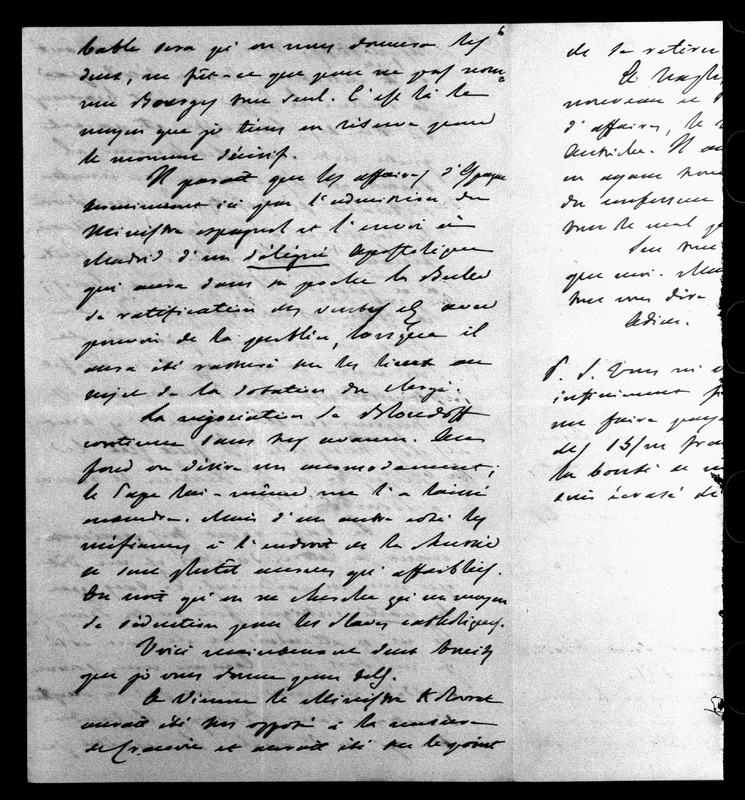 6
bable sera qu'on nous donnera les
deux, ne fût-ce que pour ne pas nom-
mer Bourges tout seul. C'est là le
moyen que je tiens en réserve pour
le moment décisif.
Il paraît que les affaires d'Espagne
ici par l'admission du
Ministre espagnol et l'envoi à
Madrid d'un délégué Apostolique
qui aura dans sa poche la Bulle
de ratification des ventes avec
pouvoir de la publier, lorsqu'il
aura été rassuré sur les lieux au
sujet de la dotation du clergé.
La négociation de Bloudoff
continue sans avancer. Au
fond on désire un accommodement;
le Pape lui-même me l'a laissé
entendre. Mais d'un autre côté les
méfiances à l'endroit de la Russie
se sont plutôt accrues qu'affaiblies.
On croit qu'on ne cherche qu'un moyen
de séduction pour les Slaves catholiques.
Voici maintenant deux bruits
que je vous donne pour tels.
A Vienne le Ministre Kolowrat
aurait été très opposé à la mesure
de Cracovie et aurait été sur le point
de se retirer
Le
nouveau
d'affaires, le
Autriche. Il
en ayant
du
sur le mal
que moi.
vous dire
Adieu.
P. S. Vous m'
infiniment
me faire
des 15/m fra
la bonté de m
suis écrasé de